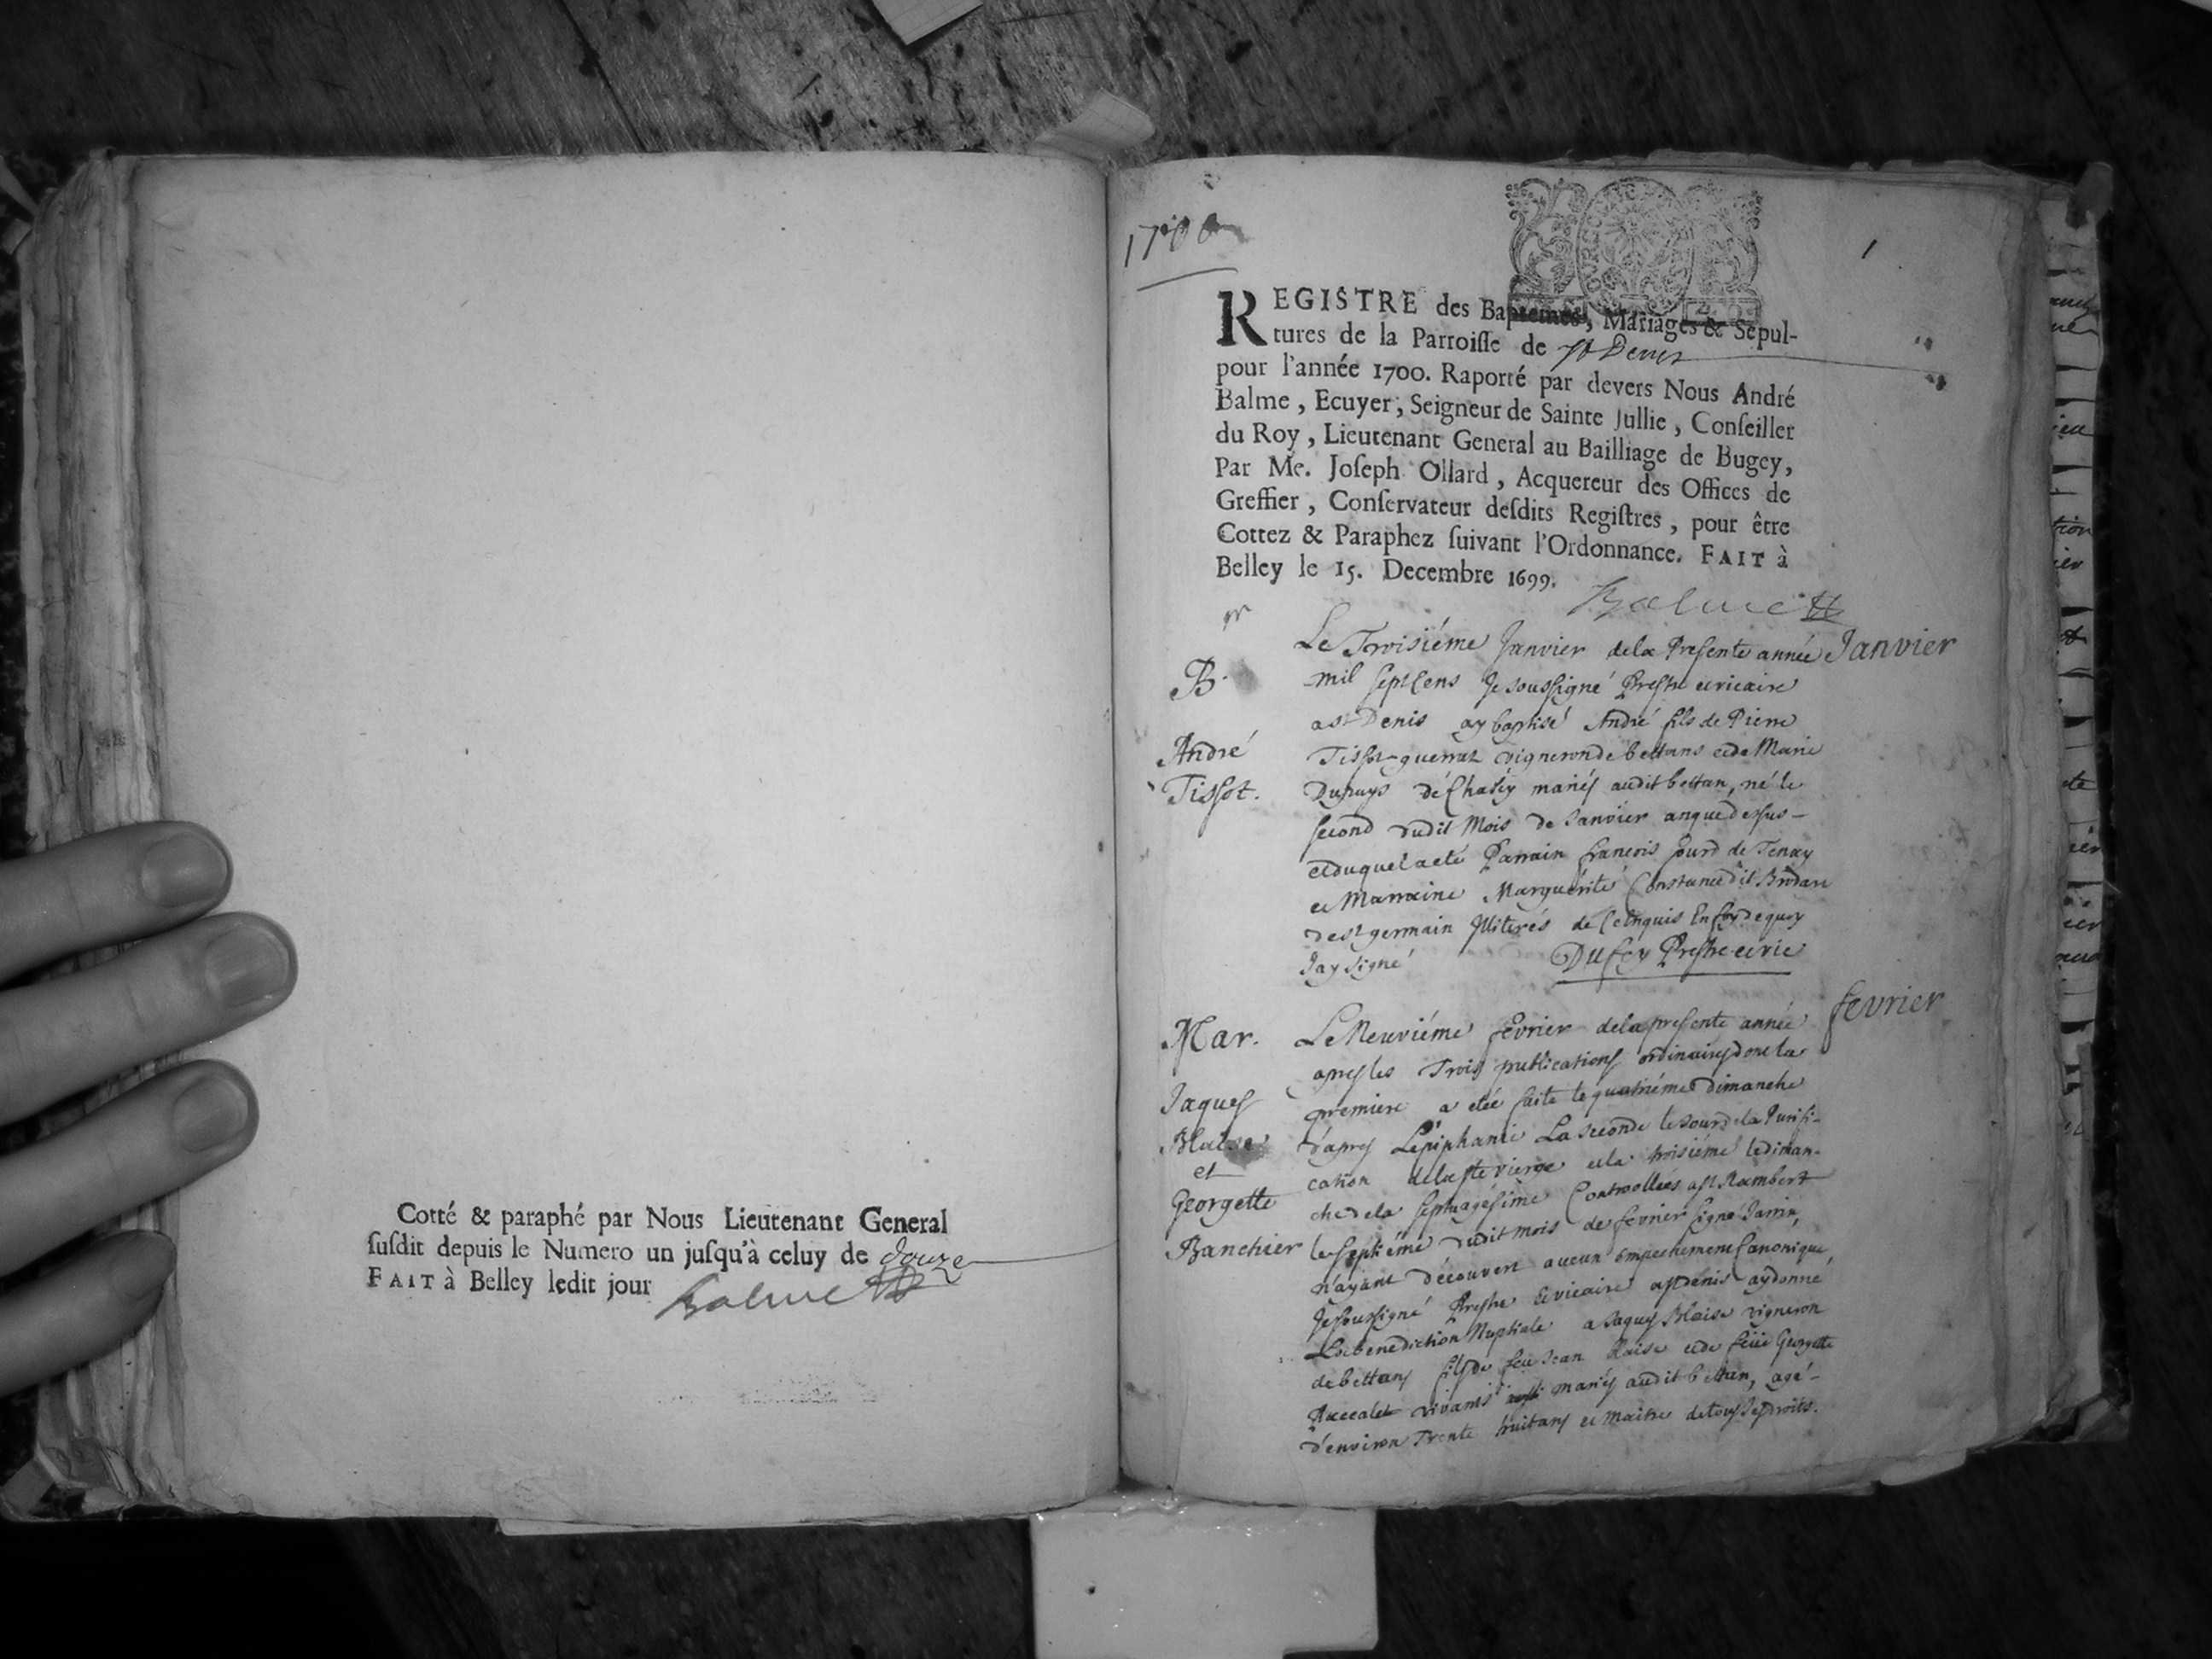 Cotté & paraphé par Nous Lieutenant General
ſuſdit depuis le Numero un juſqu'à celuy de douze
FAIT à Belley ledit jour Balme
1700
1
REGISTRE des Baptemes, Mariages & Sepul-
tures de la Parroiſſe de St Denis
pour l'année 1700. Raporté par devers Nous André
Balme, Ecuyer, Seigneur de Sainte Jullie, Conſeiller
du Roy, Lieutenant General au Bailliage de Bugey,
Par Me. Joſeph Ollard, Acquereur des Offices de
Greffier, Conſervateur deſdits Regiſtres, pour être
Cottez & Paraphez ſuivant l'Ordonnance. FAIT à
Belley le 15. Decembre 1699.
Balme
Janvier
B.
André
Tissot.
Le Troisiéme Janvier de la Presente année
mil sept Cens Je soussigné Prestre et vicaire
a st Denis ay baptisé André fils de Pierre
Tissot-guerraz vigneron de bettans et de Marie
Dupuys de Chasey mariés audit bettan, né le
second dudit Mois de Janvier an que dessus
et duquel a eté Parrain francois Jourd de Tenay
et Marraine Marguérite Constance dit Brodan
de st germain Illiterés de Ce Enquis En foy de quoy
Jay signé Dufey Prestre et vic
fevrier
Mar.
Jaques
Blaise
et
Georgette
Banchier
Le Neuviéme fevrier de la presente année
apres les Trois publications ordinaires dont la
premiere a eteé faite le quatriéme dimanche
d'apres L'epiphanie La seconde le Jour de la Purifi-
cation de la ste vierge et la troisiéme le diman-
che de la septuagésime Controollées a st Rambert
le septiéme dudit mois de fevrier signé Janin,
n'ayant découvert aucun Empechement Canonique,
Je soussigné Prestre et vicaire a st denis ay donné
La benediction Nuptiale a Jaques Blaise vigneron
de bettans fils de feu Jean Blaise et de feüe Georgette
vivants mariés audit bettan, agé
d'environ Trente huit ans et maitre de tous ses droits.